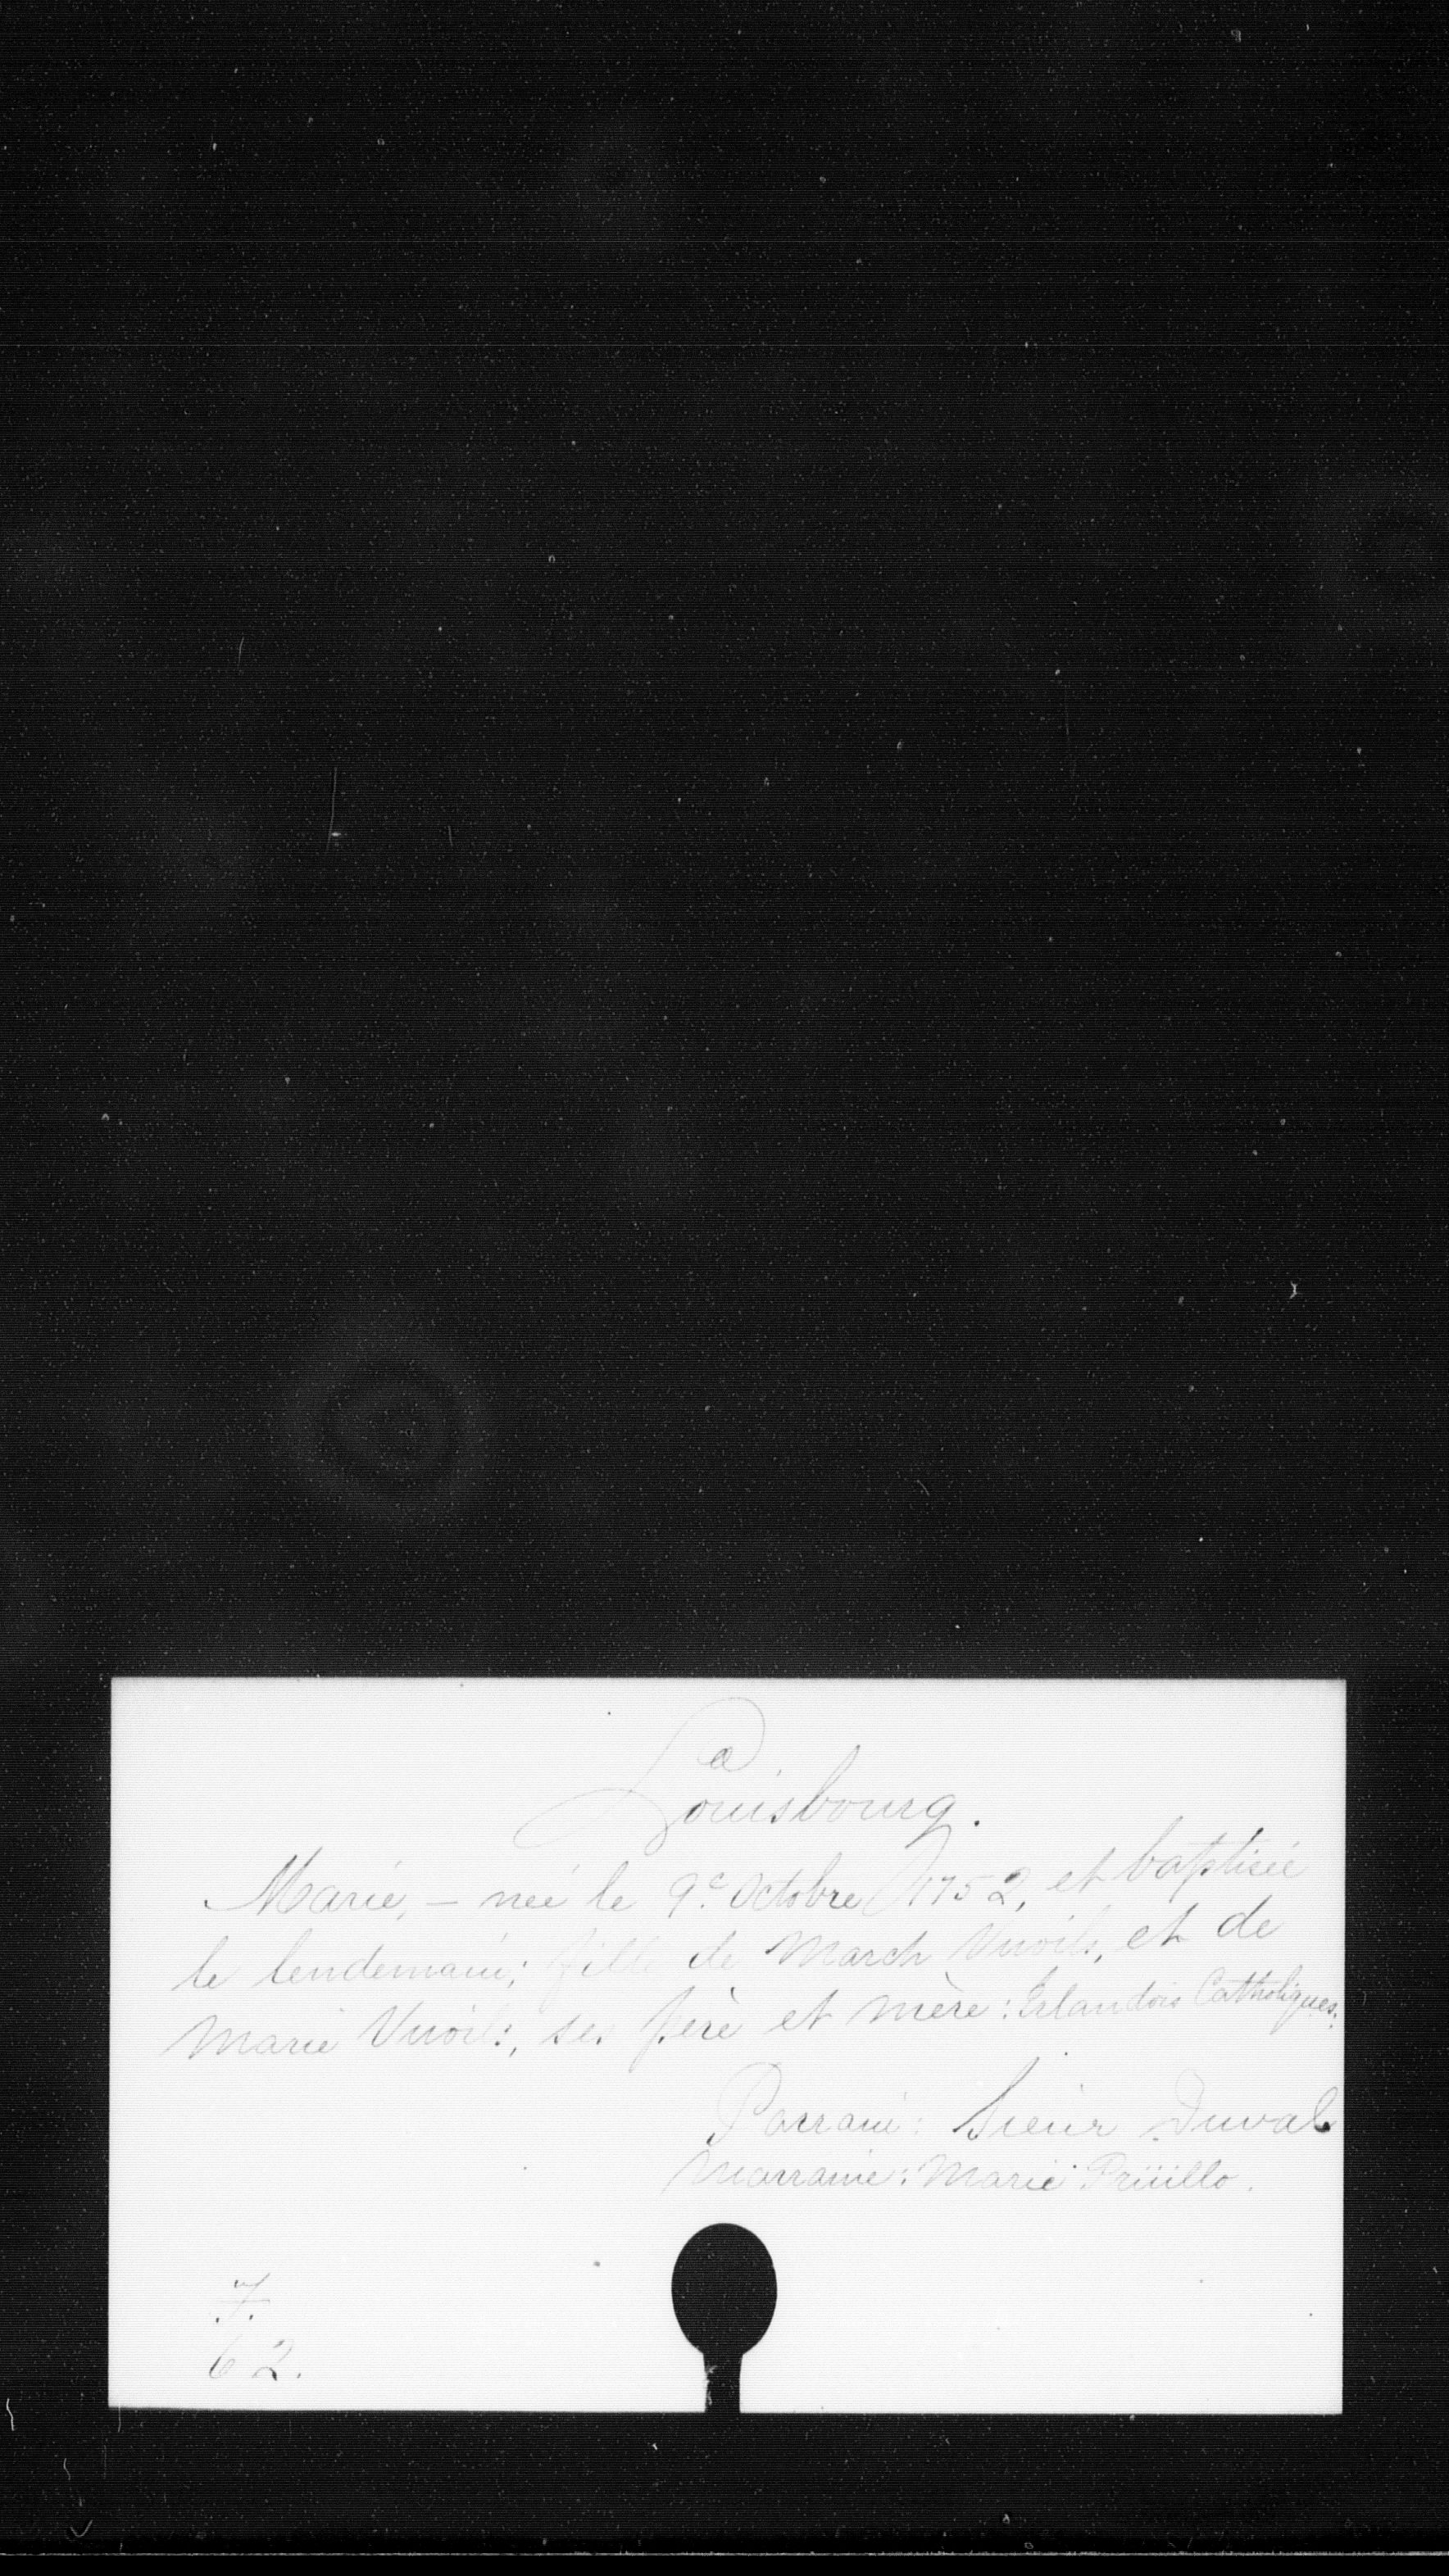 Louisbourg.
Marie, - née le 9e Octobre 1752, et baptisée
le lendemain; fille de March et de
Marie ses père et mère: Irlandois Catholiques.
Parrain: Sieur Duval
Marraine: Marie
7.
62.